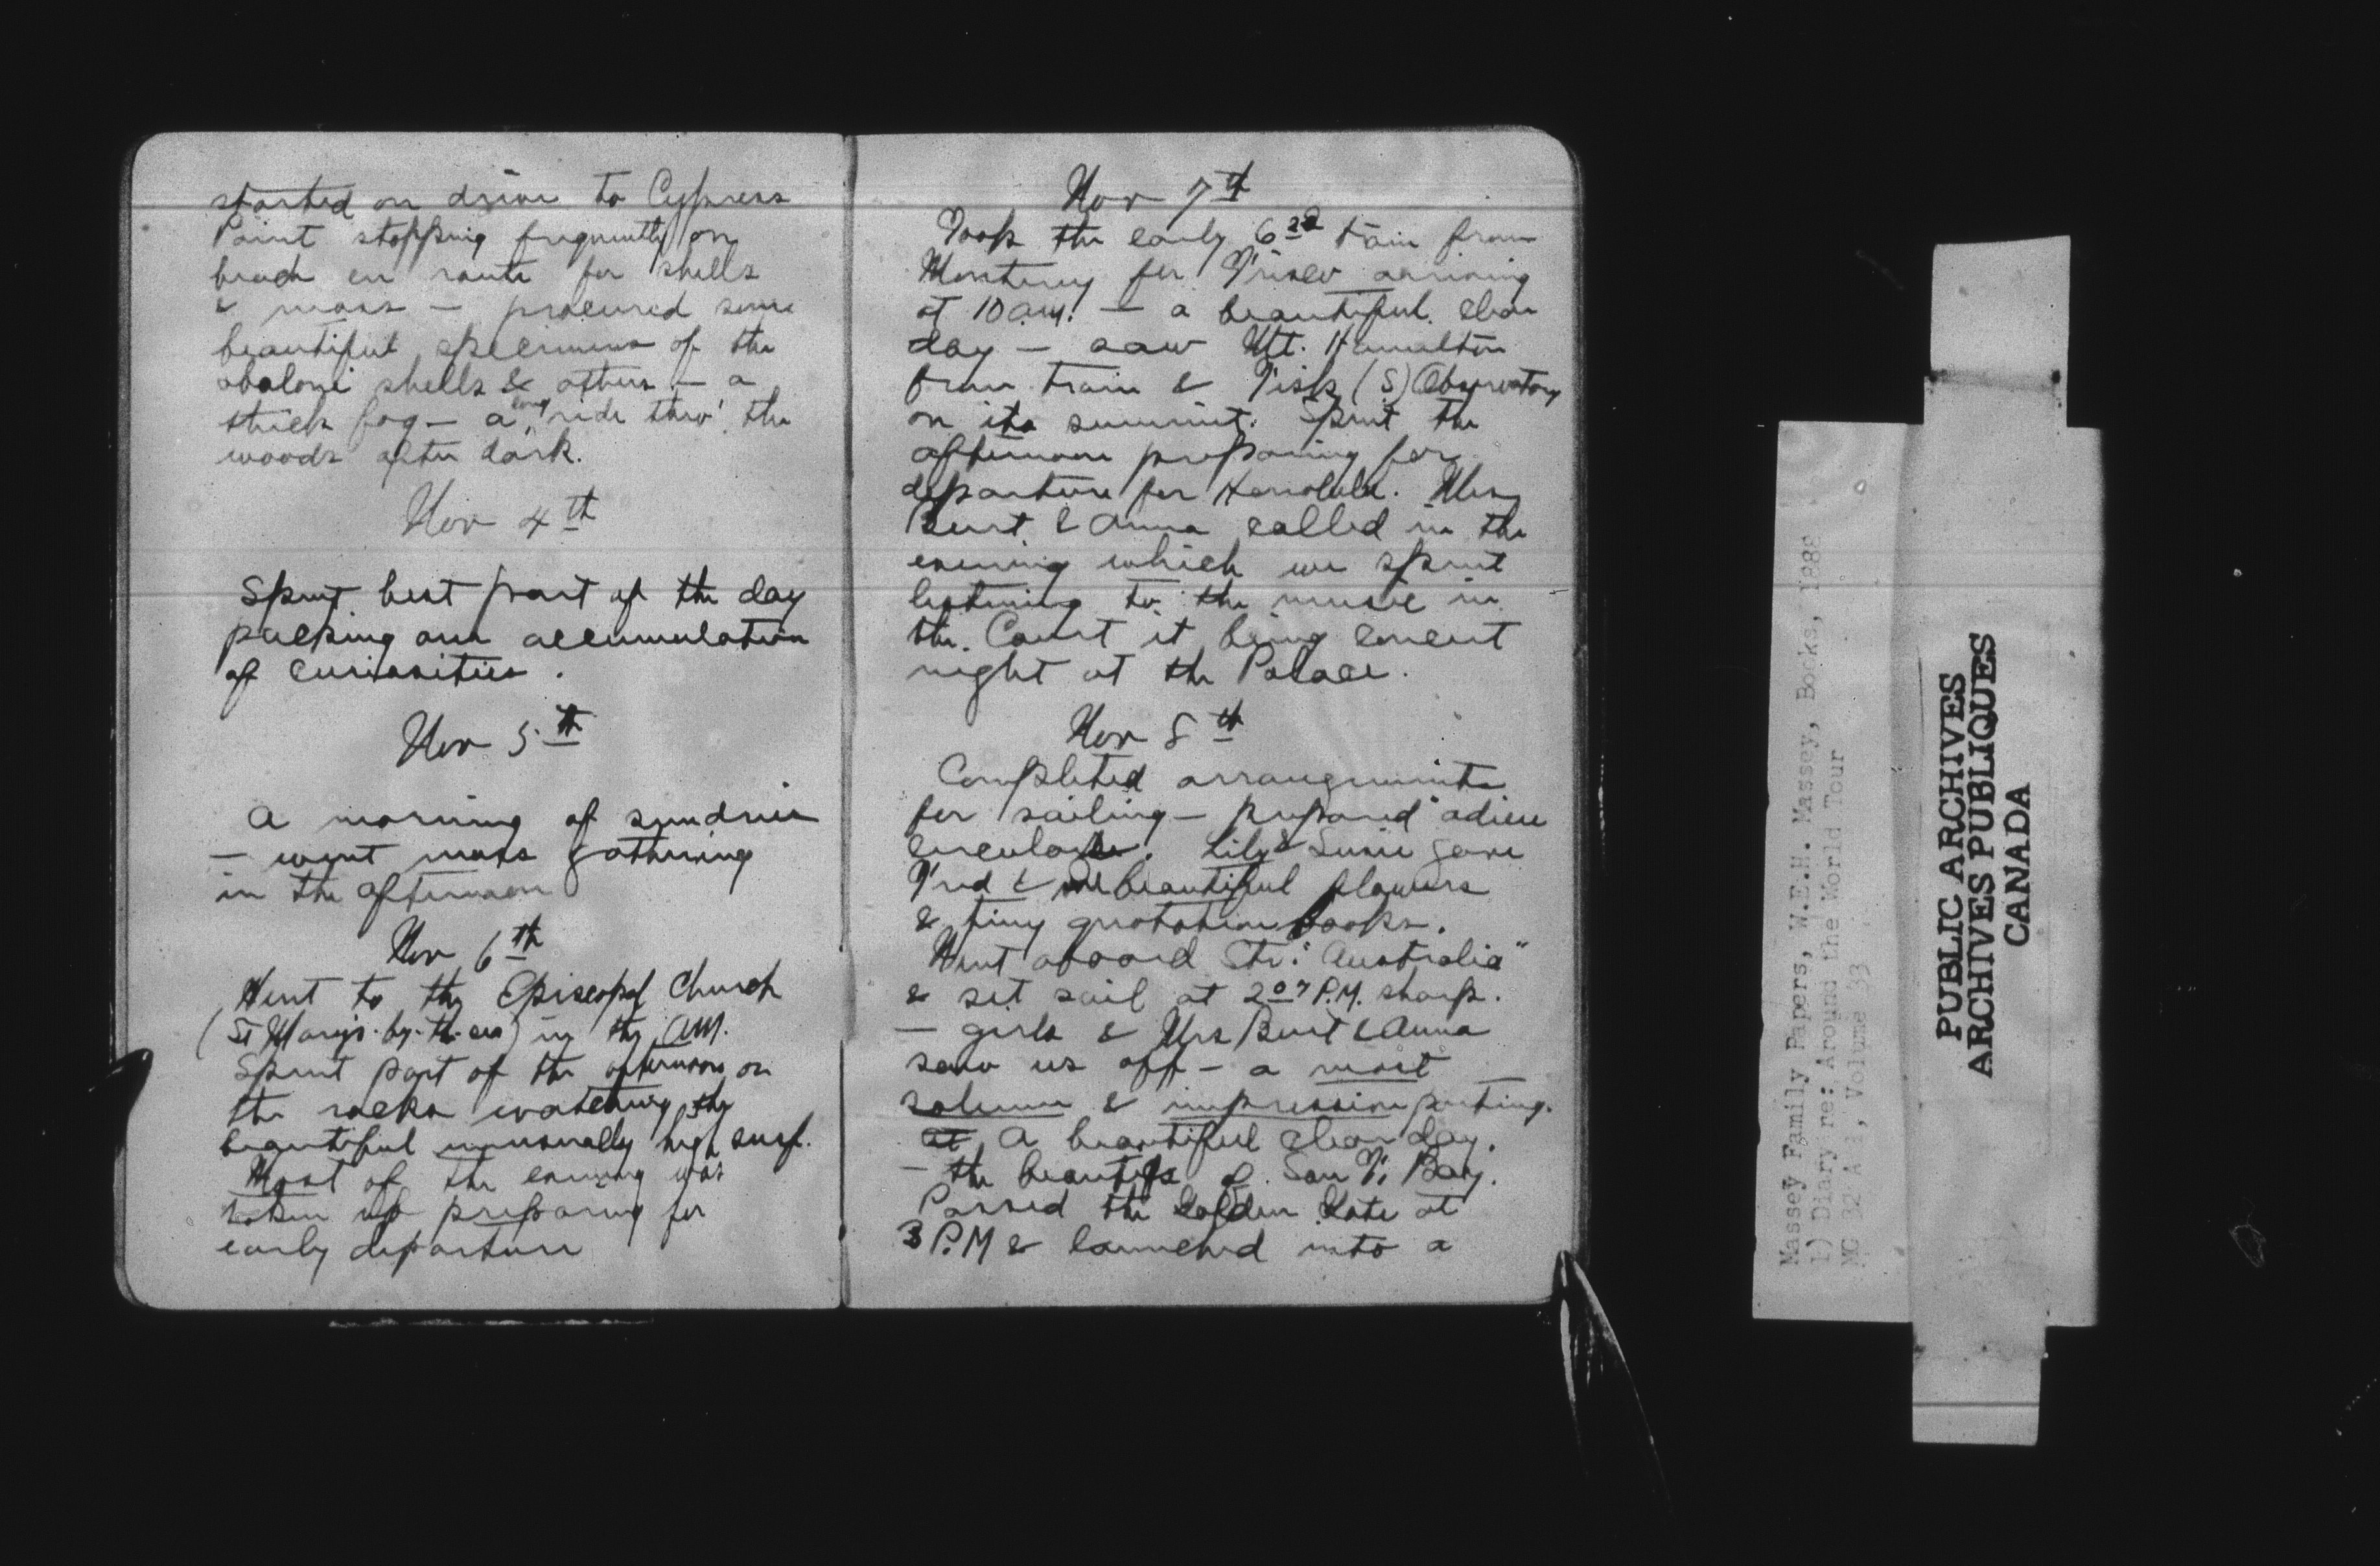 started on drive to Cypress
Point stopping frequently on
beach en route for shells
& moss — procured some
beautiful specimens of the
abaloni shells & others — a
thick fog — a long ride thro' the
woods after dark.
Nov 4th
Spent best part of the day
packing our accumulation
of curiosities.
Nov 5th
A morning of sundries
— went moss gathering
in the afternoon
Nov 6th
Went to the Episcopal Church
(St Mary's-by-the-sea) in the A.M.
Spent part of the afternoon on
the rocks watching the
beautiful unusually high surf.
Most of the evening was
taken up preparing for
early departure
Nov 7th
Took the early 6 train from
Monterey for Frisco arriving
at 10 a.m. — a beautiful clear
day — saw Mt. Hamilton
from train & (S) Observatory
on its summit. Spent the
afternoon preparing for
departure for Honolulu. Mrs
Burt & Anna called in the
evening which we spent
listening to the music in
the Court it being concert
night at the Palace.
Nov 8th
Completed arrangements
for sailing — prepared "adieu
circulars. Lily & Susie gave
Fred & me beautiful flowers
& tiny quotation books.
Went aboard Str: "Australia"
& set sail at 2 07 P.M. sharp.
— girls & Mrs Burt & Anna
saw us off — a most
solemn & impressive parting.
at A beautiful clear day.
— the beauties of San F. Bay.
Passed the Golden Gate at
3 P.M & launched into a
Massey Family Papers, W.E.H. Massey, Books, 1888
1) Diary re: Around the World Tour
MG 32 A 1, Volume 33
PUBLIC ARCHIVES
ARCHIVES PUBLIQUES
CANADA